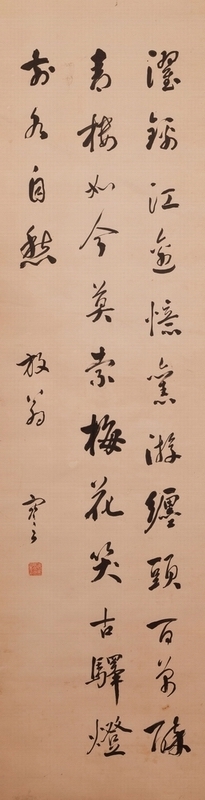 濯錦江邊憶舊游纏頭百萬醉
青樓如今莫索梅花笑古驛燈
前各自愁
放翁
寒云